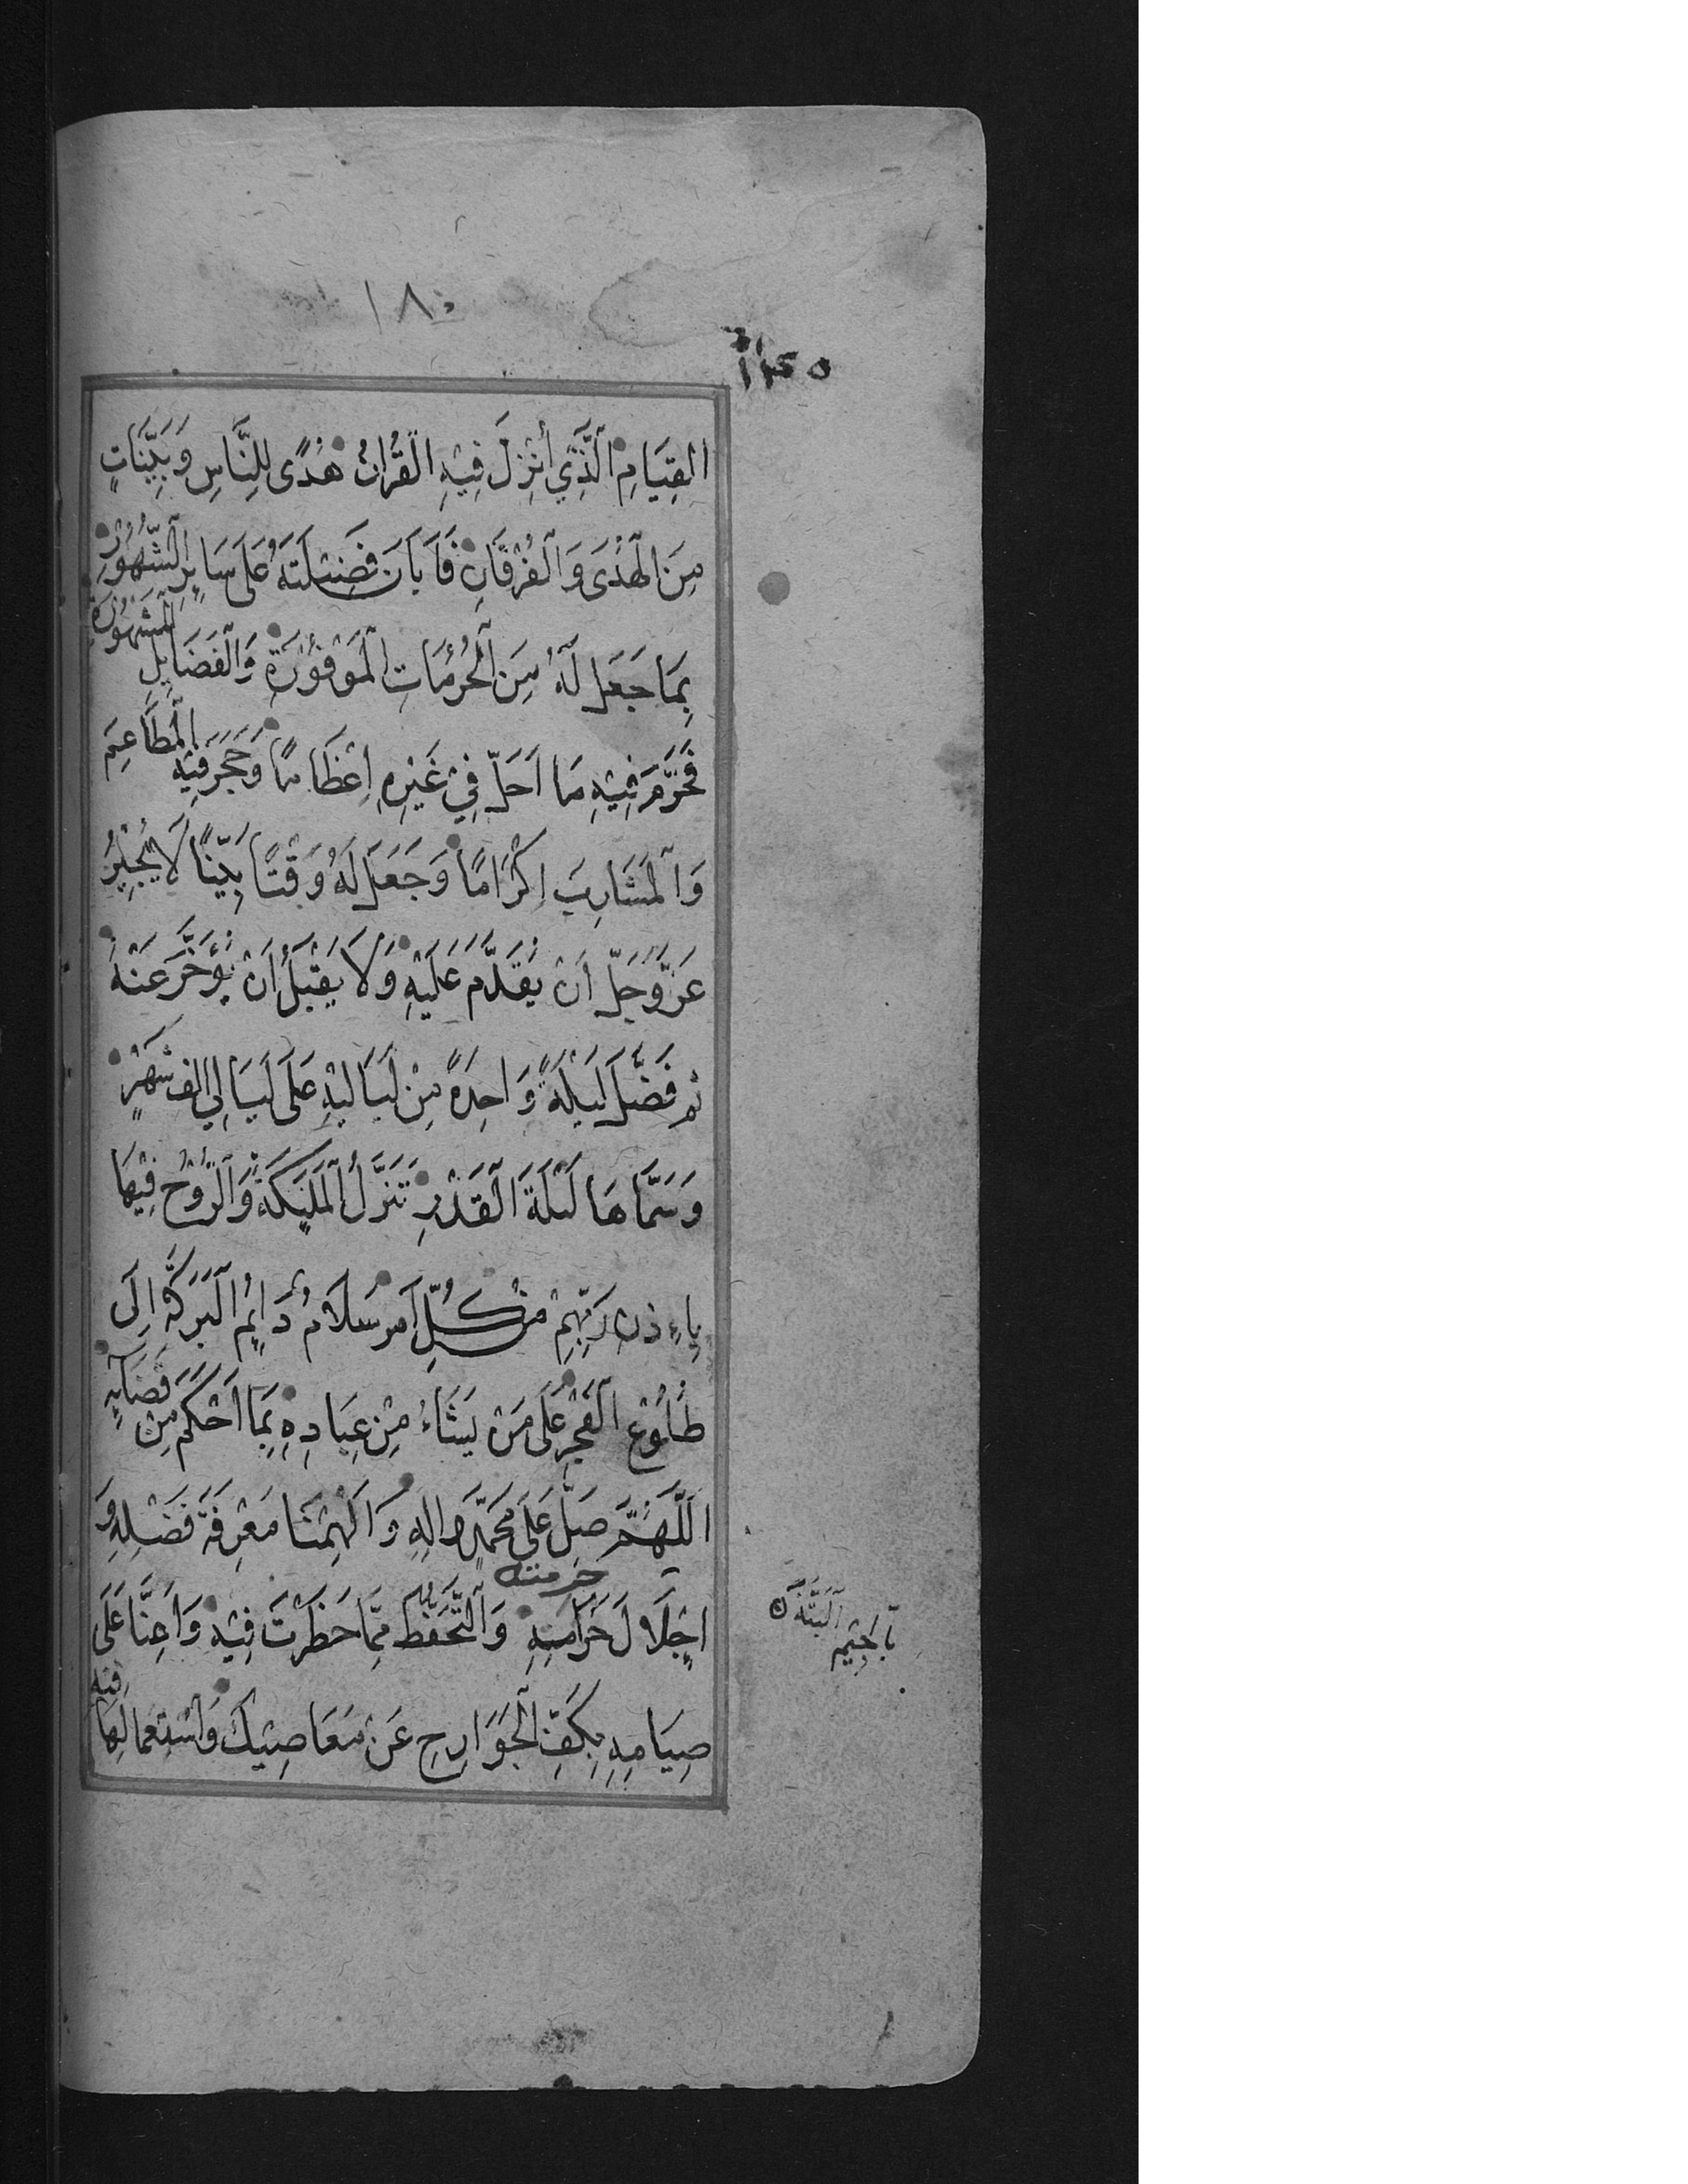 ١٨٠
القِيَامِ الَّذِي أُنْزِلَ فِيْهِ الْقُرْانُ هُدًى لِلنَّاسِ وَبَيِّنَاتٍ
مِنَ الْهُدَى وَالْفُرْقَانِ فَاَبَانَ فَضِيْلَتَهُ عَلَى سَايِرِ الشُّهُوْرِ
بِمَا جَعَلَ لَهُ مِنَ الْحُرُمَاتِ الْمَوْفُوْرَةِ وَالْفَضَايِلِ الْمَشْهُوْرَةِ
فَحَرَّمَ فِيْهِ مَا اَحَلَّ فِيْ غَيْرِهِ اِعْظَامًا وَحَجَرَ فِيْهِ الْمَطَاعِمَ
وَالْمَشَارِبَ اِكْرَامًا وَجَعَلَ لَهُ وَقْتًا بَيِّنًا لَا يُجِيْزُ
عَزَّ وَجَلَّ اَنْ يُقَدَّمَ عَلَيْهِ وَلَا يَقْبَلُ أَنْ يُؤَخَّرَ عَنْهُ
ثم فَضَّلَ لَيْلَةً وَاحِدَةً مِنْ لَيَالِيْهِ عَلَى لَيَالِي الف شَهْرٍ
وَسَمَّاهَا لَيْلَةَ الْقَدْرِ تَنَزَّلُ الْمَلٰيِكَةُ وَالرُّوْحُ فِيْهَا
بِاِذن رَبِّهِمْ مِنْ كُلِّ اَمر سَلَامٌ دَايِمُ الْبَرَكَةِ اِلَى
طُلُوْعِ الْفَجْرِ عَلَى مَنْ يَشَاءُ مِنْ عِبَادِهِ بِمَا اَحْكَمَ مِنْ قَضَايِهِ
اَللَّهُمَّ صَلِّ عَلَى مُحَمَّدٍ وَالِهِ وَاَلْهِمْنَا مَعْرِفَةَ فَضْلِهِ وَ
حرمته
اِجْلَالَ حَرَامِهِ وَالتَّحَفُّظَ مِمَّا حَظَرْتَ فِيْهِ وَاَعِنَّا عَلَى
صِيَامِهِ بِكَفِّ الْجَوَارِحِ عَنْ مَعَاصِيْكَ وَاسْتِعْمَالِهَا فيه